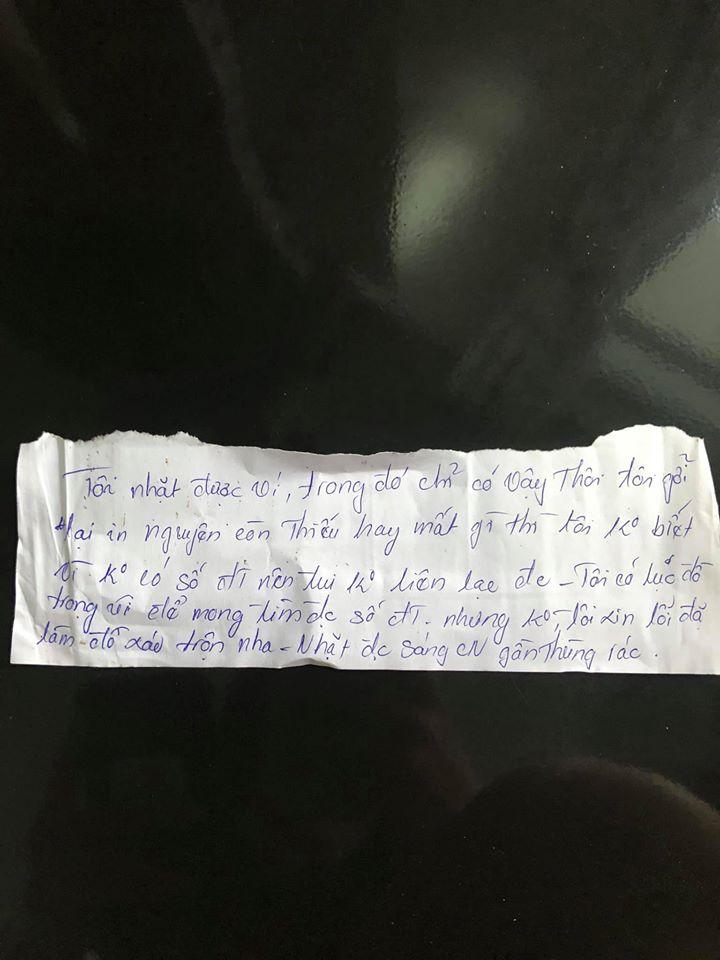 Tôi nhặt được ví, trong đó chỉ có vậy Thôi tôi gởi
lại in nguyên còn Thiếu hay mất gì thì tôi Ko biết
Vì Ko có số đt nên tui Ko liên lạc đc - Tôi có lục đồ
trong ví để mong tìm đc số đt. nhưng Ko, tôi xin lỗi đã
làm đồ xáo trộn nha - Nhặt đc sáng CN gần thùng rác.